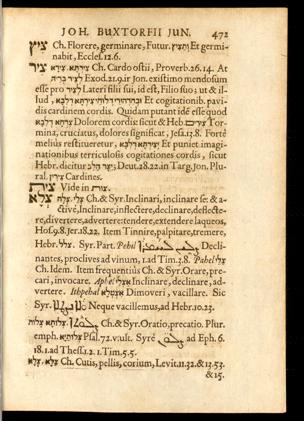 JOH. BUXTORFII JUN. 472
צִיץ Ch. Florere, germinare, Futur. וְתָצִיץ Et germi-
nabit, Eccles. 12. 6.
צִיר צִירָא Ch. Cardo ostii, Proverb. 26. 14. At
Exod. 21. 9. ir Jon. existimo mendosum
esse pro Lateri filii sui, id est, Filio suo; ut & il-
lud, Et cogitationib. pavi-
dis cardinem cordis. Quidam putant idẽ esse quod
Dolorem cordis: sicut & Heb. צירים Tor-
mina, cruciatus, dolores significat, Jesa. 13. 8. Fortè
melius restitueretur, Et puniet imagi-
nationibus terriculosis cogitationes cordis, sicut
Hebr. dicitur Deut. 28. 22. in Targ. Jon. Plu-
ral. צירין Cardines.
צית Vide in צות.
צלא Ch. & Syr. Inclinari, inclinare se: & a-
ctivè, Inclinare, inflectere, declinare, deflecte-
re, divertere, advertere: tendere, extendere laqueos,
Hos. 9. 8. Jer. 18. 22. Item Tinnire, palpitare, tremere,
Hebr. צלל. Syr. Part. Pehil Decli-
nantes, proclives ad vinum, 1. ad Tim. 3. 8. Pahel צלי
Ch. Idem. Item frequentiùs Ch. & Syr. Orare, pre-
cari, invocare. Aphel אצלי Inclinare, declinare, ad-
vertere. Ithpehal Dimoveri, vacillare. Sic
Syr. Neque vacillemus, ad Hebr. 10. 23.
Ch. & Syr. Oratio, precatio. Plur.
emph. Psal. 72. v. ult. Syrè ad Eph. 6.
18. 1. ad Thess. 1. 2. 1. Tim. 5. 5.
Ch. Cutis, pellis, corium, Levit. 11. 32. & 13. 53.
& 15.